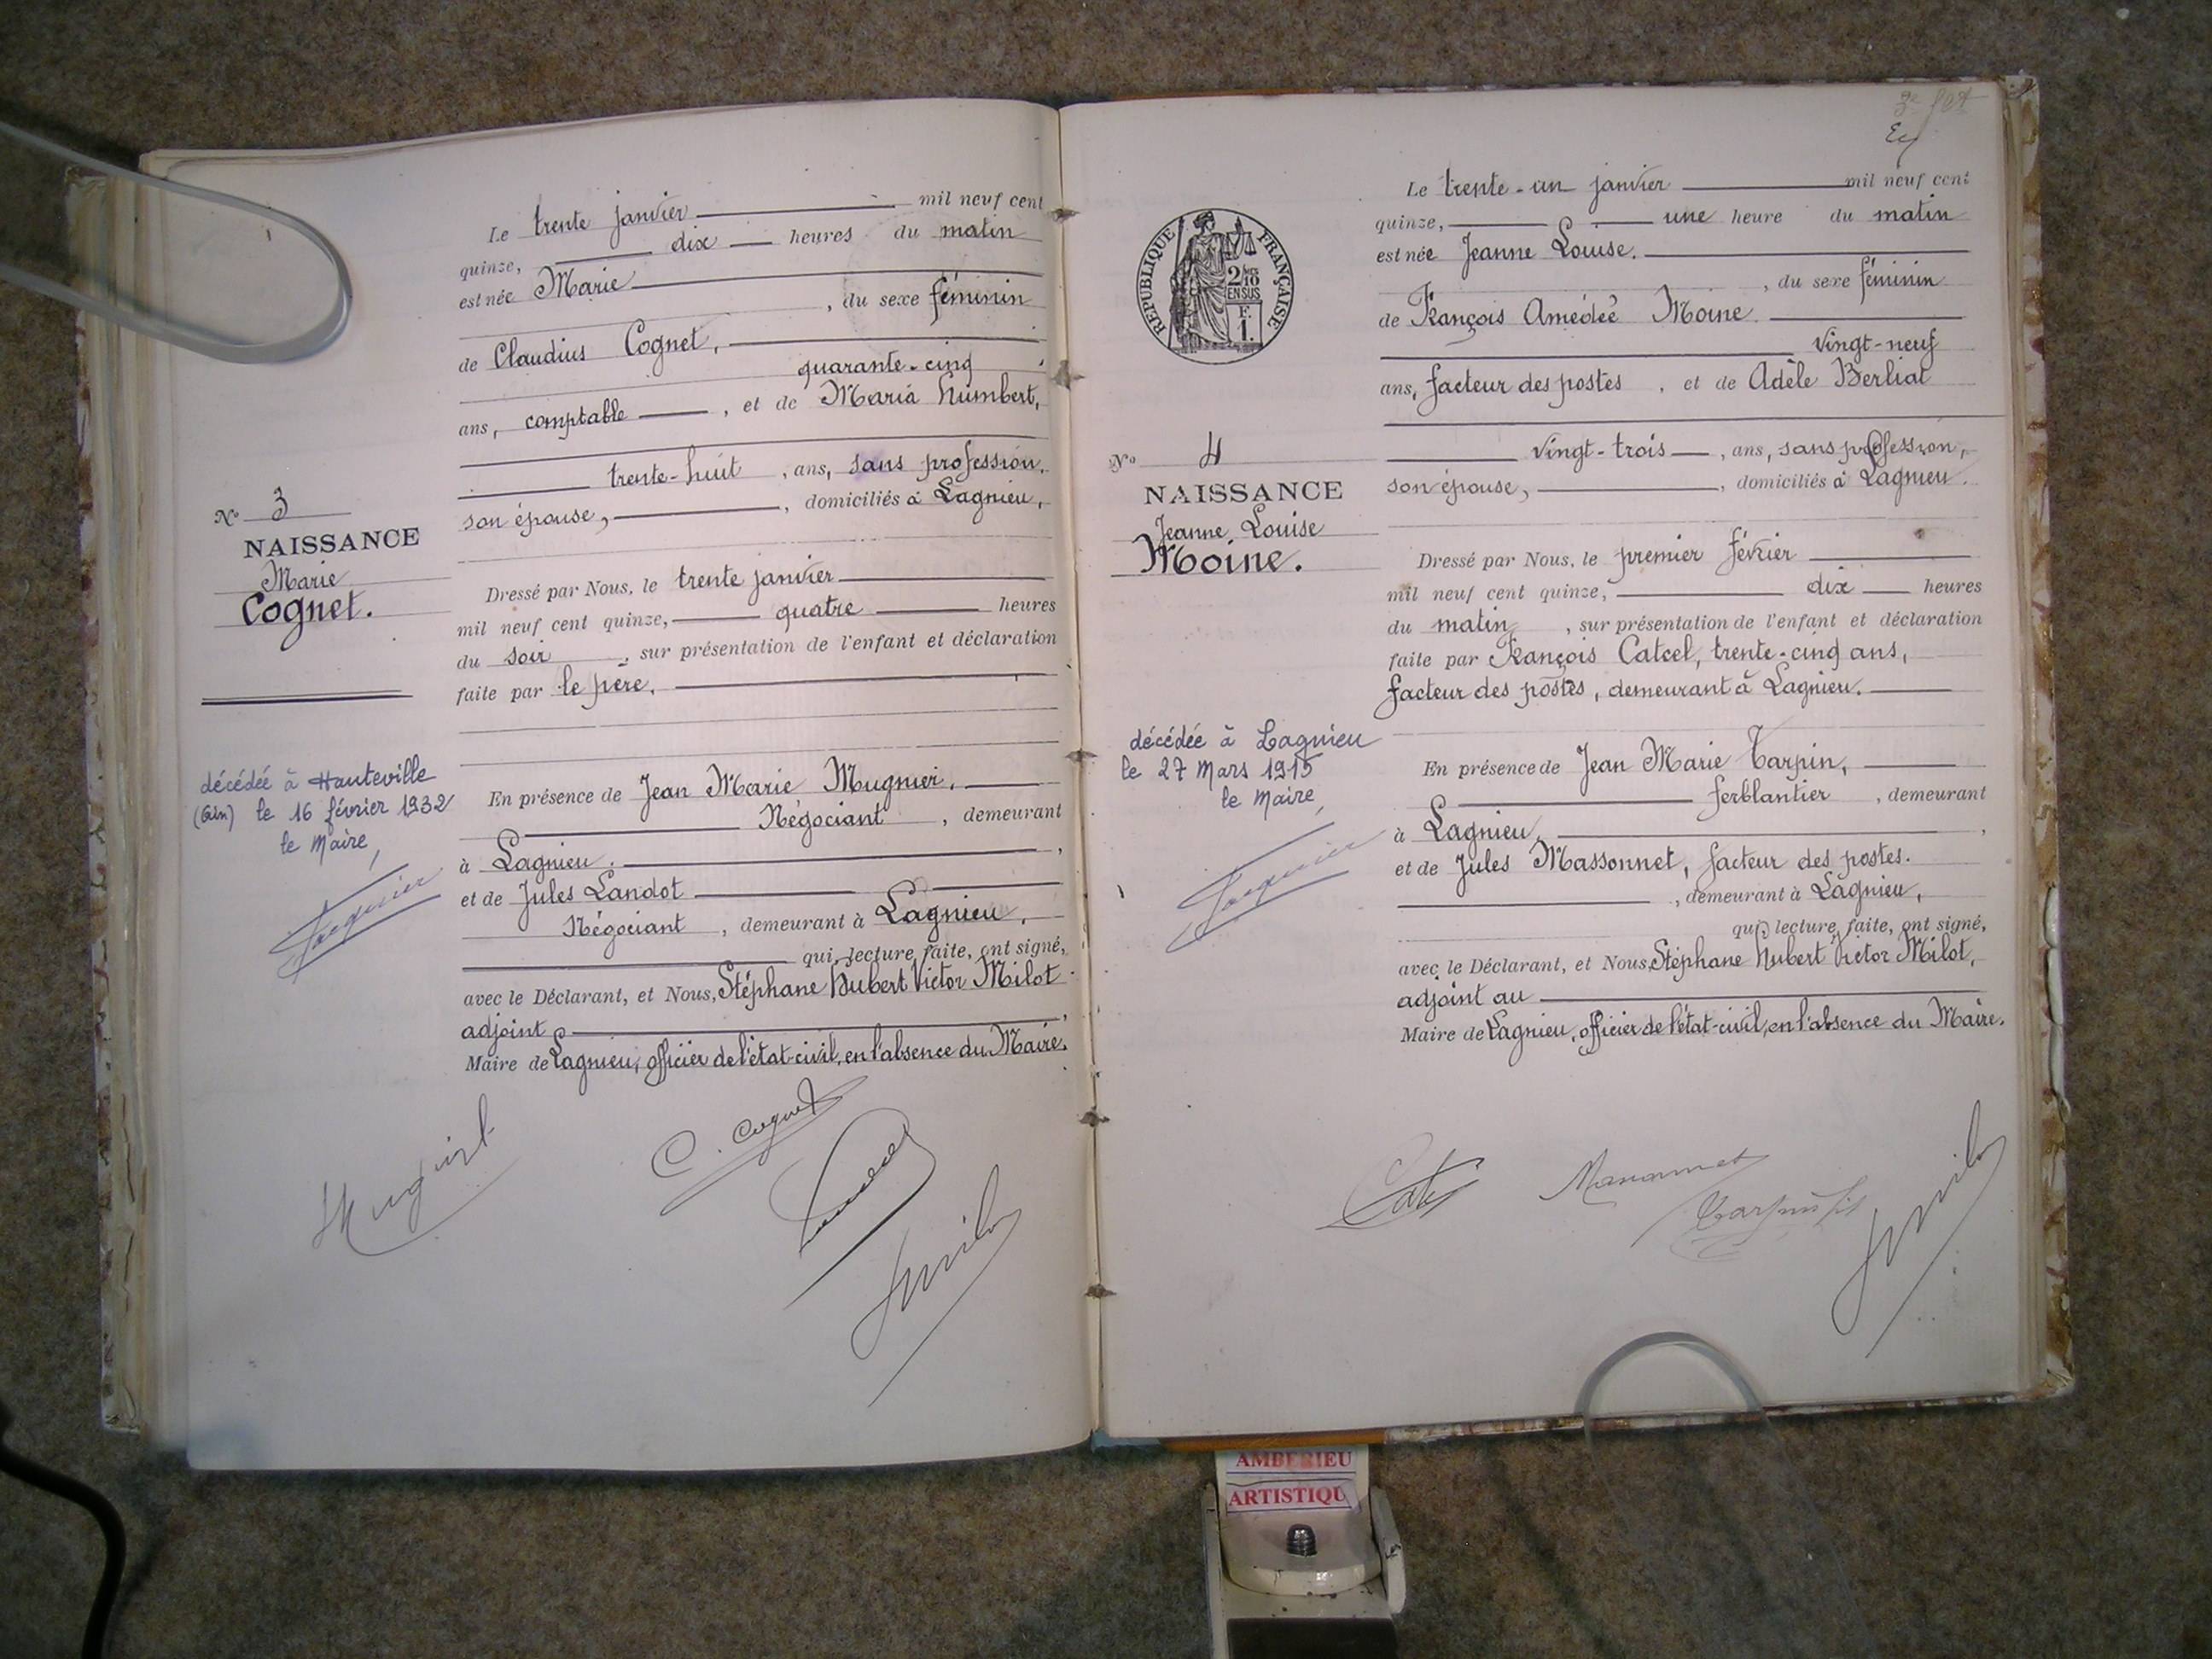 Le trente janvier mil neuf cent
quinze, dix heures du matin
est née Marie
, du sexe féminin
de Claudius Cognet,
quarante-cinq
ans, comptable , et de Maria Humbert,
trente-huit , ans, sans profession,
son épouse, , domiciliés à Lagnieu,
N° 3
NAISSANCE
Marie
Cognet.
Dressé par Nous, le trente janvier
mil neuf cent quinze, quatre heures
du soir , sur présentation de l'enfant et déclaration
faite par le père,
décédée à Hauteville
(Ain) le 16 février 1932
le Maire,
En présence de Jean Marie Mugnier,
Négociant , demeurant
à Lagnieu. ,
et de Jules Landot
Négociant , demeurant à Lagnieu,
qui, lecture faite, ont signé,
avec le Déclarant, et Nous, Stéphane Hubert Victor Milot
adjoint ,
Maire de Lagnieu, officier de l'état-civil, en l'absence du Maire.
C. Cognet
Le trente-un janvier mil neuf cent
quinze, une heure du matin
est née Jeanne Louise.
, du sexe féminin
de François Amédée Moine
vingt-neuf
ans, facteur des postes , et de Adèle Berliat
vingt-trois , ans, sans profession,
son épouse, , domiciliés à Lagnieu.
RÉPUBLIQUE FRANÇAISE
2/10
EN SUS
F.
1.
N° 4
NAISSANCE
Jeanne Louise
Moine.
Dressé par Nous, le premier février
mil neuf cent quinze, dix heures
du matin , sur présentation de l'enfant et déclaration
faite par François Catcel, trente-cinq ans,
facteur des postes, demeurant à Lagnieu.
décédée à Lagnieu
le 27 Mars 1915
le Maire,
En présence de Jean Marie Tarpin,
ferblantier , demeurant
à Lagnieu, ,
et de Jules Massonnet, facteur des postes.
, demeurant à Lagnieu,
qui, lecture faite, ont signé,
avec le Déclarant, et Nous, Stéphane Hubert Victor Milot,
adjoint au
Maire de Lagnieu, officier de l'état-civil, en l'absence du Maire.
AMBERIEU
ARTISTIQU